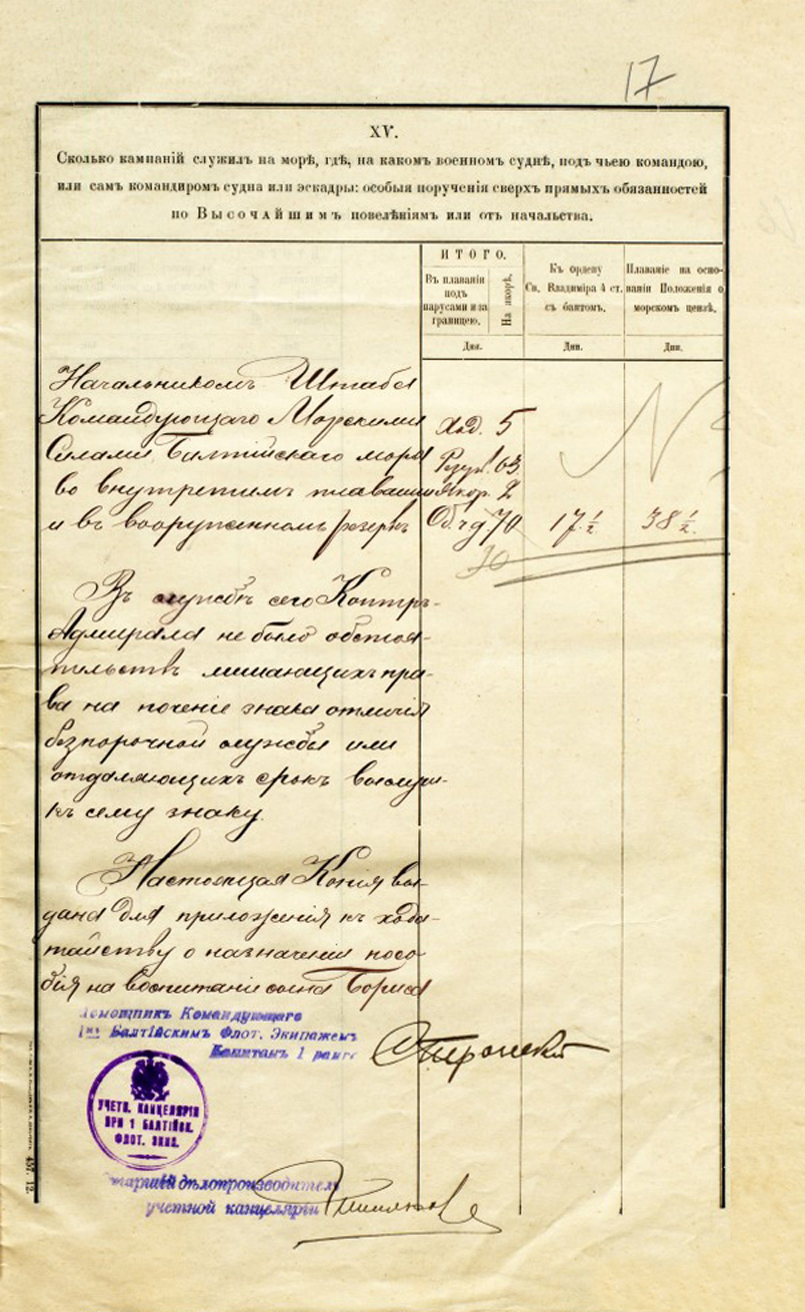 17
XV.
Сколько кампаній служилъ на морѣ, гдѣ, на какомъ военномъ суднѣ, подъ чьею командою,
или самъ командиромъ судна или эскадры: особыя порученія сверхъ прямыхъ обязанностей
по Высочайшимъ повелѣніямъ или отъ начальства.
ИТОГО.
Въ плаваніи
подъ
парусами и за
границею.
На якорѣ.
Къ ордену
Св. Владиміра 4 ст.
съ бантомъ.
Плаваніе на осно-
ваніи Положенія о
морскомъ цензѣ.
Дня.
Дни.
Дни.
Начальникомъ Штаба
Командующаго Морскими
Силами Балтійскаго моря
во внутренемъ плаваніи
и въ вооруженномъ резервѣ
Ход. 5
63
Якор. 2
70
17 ½
38 ½
70
Въ службѣ сего Контръ-
Адмирала не было обстоя-
тельствъ лишающихъ пра-
ва на
знака отличія
безпорочной службы или
отдаляющихъ срокъ выслуги
къ сему знаку.
Настоящая Копія вы-
дана для приложенія къ хода-
тайству о назначеніи посо-
бія на воспитаніе сына Бориса
Помощник Командующаго
1мъ Балтійскимъ Флот. Экипажемъ
Капитан 1 ранга
УЧЕТН. КАНЦЕЛЯРІЯ
ПРИ 1 БАЛТІЙСК.
ФЛОТ. ЭКИП.
Старшій дѣлопроизводитель
учетной канцеляріи